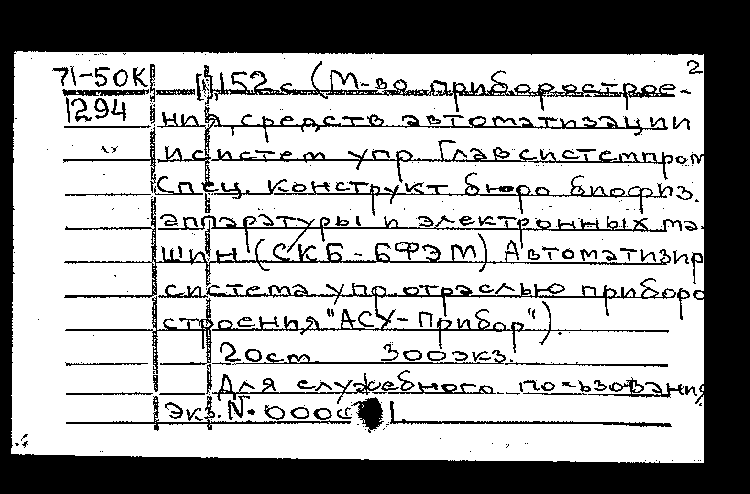 2
71-50К
1294
152 с (М-во приборострое-
ния, средств автоматизации
и систем упр. Главсистемпром
Спец. конструкт бюро биофиз.
аппаратуры и электронных ма-
шин (СКБ-БФЭМ) Автоматизир
система упр. отраслью приборо
строения "АСУ-Прибор").
20см. 300экз.
Для служебного пользования
Экз. №